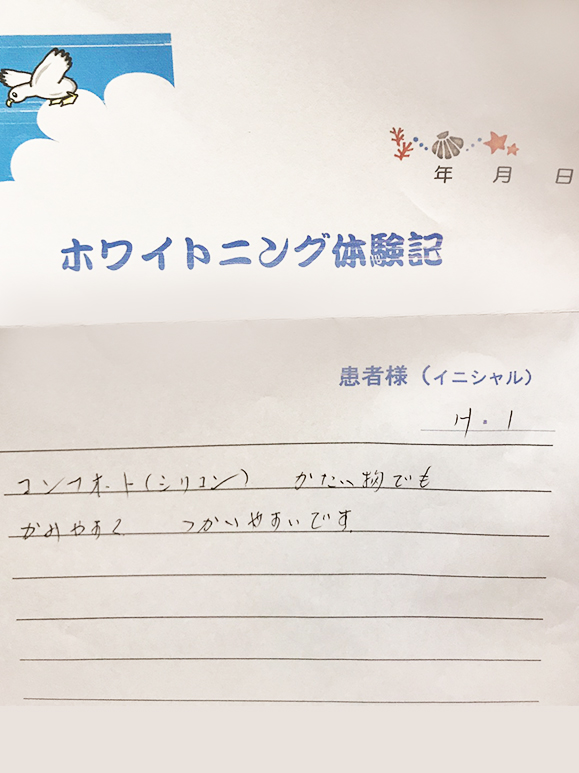 年 月 日
ホワイトニング体験記
患者様（イニシャル）
H・I
コンフォート（シリコン） かたい物でも
かみやすく つかいやすいです。